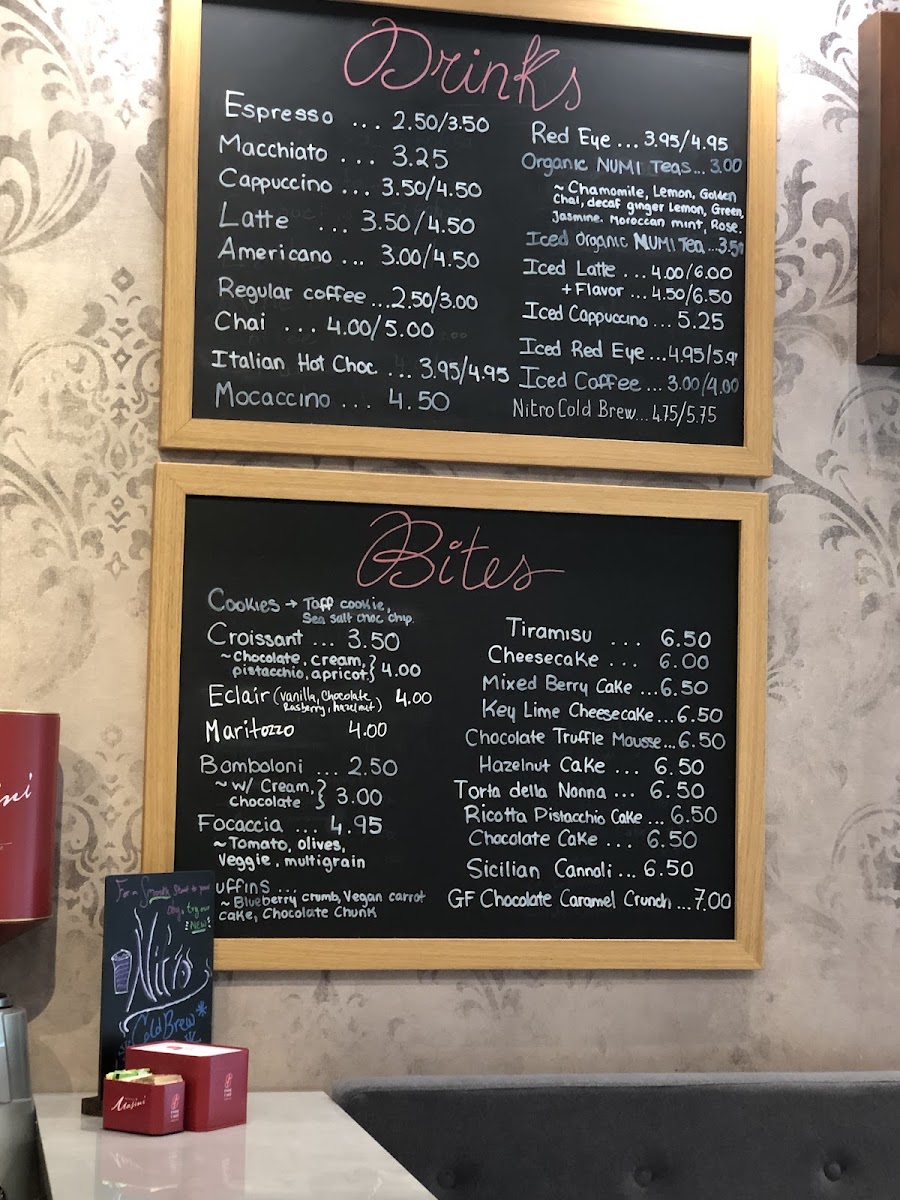 Drinks
Espresso ... 2.50/3.50
Macchiato ... 3.25
Cappuccino ... 3.50/4.50
Latte ... 3.50/4.50
Americano ... 3.00/4.50
Regular coffee ... 2.50/3.00
Chai ... 4.00/5.00
Italian Hot Choc ... 3.95/4.95
Mocaccino ... 4.50
Red Eye ... 3.95/4.95
Organic NUMI Teas ... 3.00
~ Chamomile, Lemon, Golden
Chai, decaf ginger lemon, Green,
Jasmine. Moroccan mint, Rose.
Iced Organic NUMI Tea ... 3.50
Iced Latte ... 4.00/6.00
+ Flavor ... 4.50/6.50
Iced Cappuccino ... 5.25
Iced Red Eye ... 4.95/5.9
Iced Coffee ... 3.00/4.00
Nitro Cold Brew... 4.75/5.75
Bites
Cookies → Taff cookie,
Sea salt choc chip.
Croissant ... 3.50
~ Chocolate, cream,
pistacchio, apricot } 4.00
Eclair (vanilla, Chocolate 4.00
Rasberry, hazelnut)
Maritozzo 4.00
Bomboloni ... 2.50
~ w/ Cream,
chocolate } 3.00
Focaccia ... 4.95
~ Tomato, olives,
Veggie, multigrain
uffins ...
~ Blueberry crumb, Vegan carrot
cake, Chocolate Chunk
Tiramisu ... 6.50
Cheesecake ... 6.00
Mixed Berry Cake ... 6.50
Key Lime Cheesecake... 6.50
Chocolate Truffle Mousse... 6.50
Hazelnut Cake ... 6.50
Torta della Nonna ... 6.50
Ricotta Pistacchio Cake ... 6.50
Chocolate Cake ... 6.50
Sicilian Cannoli ... 6.50
GF Chocolate Caramel Crunch ... 7.00
For a Smooth start to your
day, try our
NEW
Nitro
Cold Brew
Masini